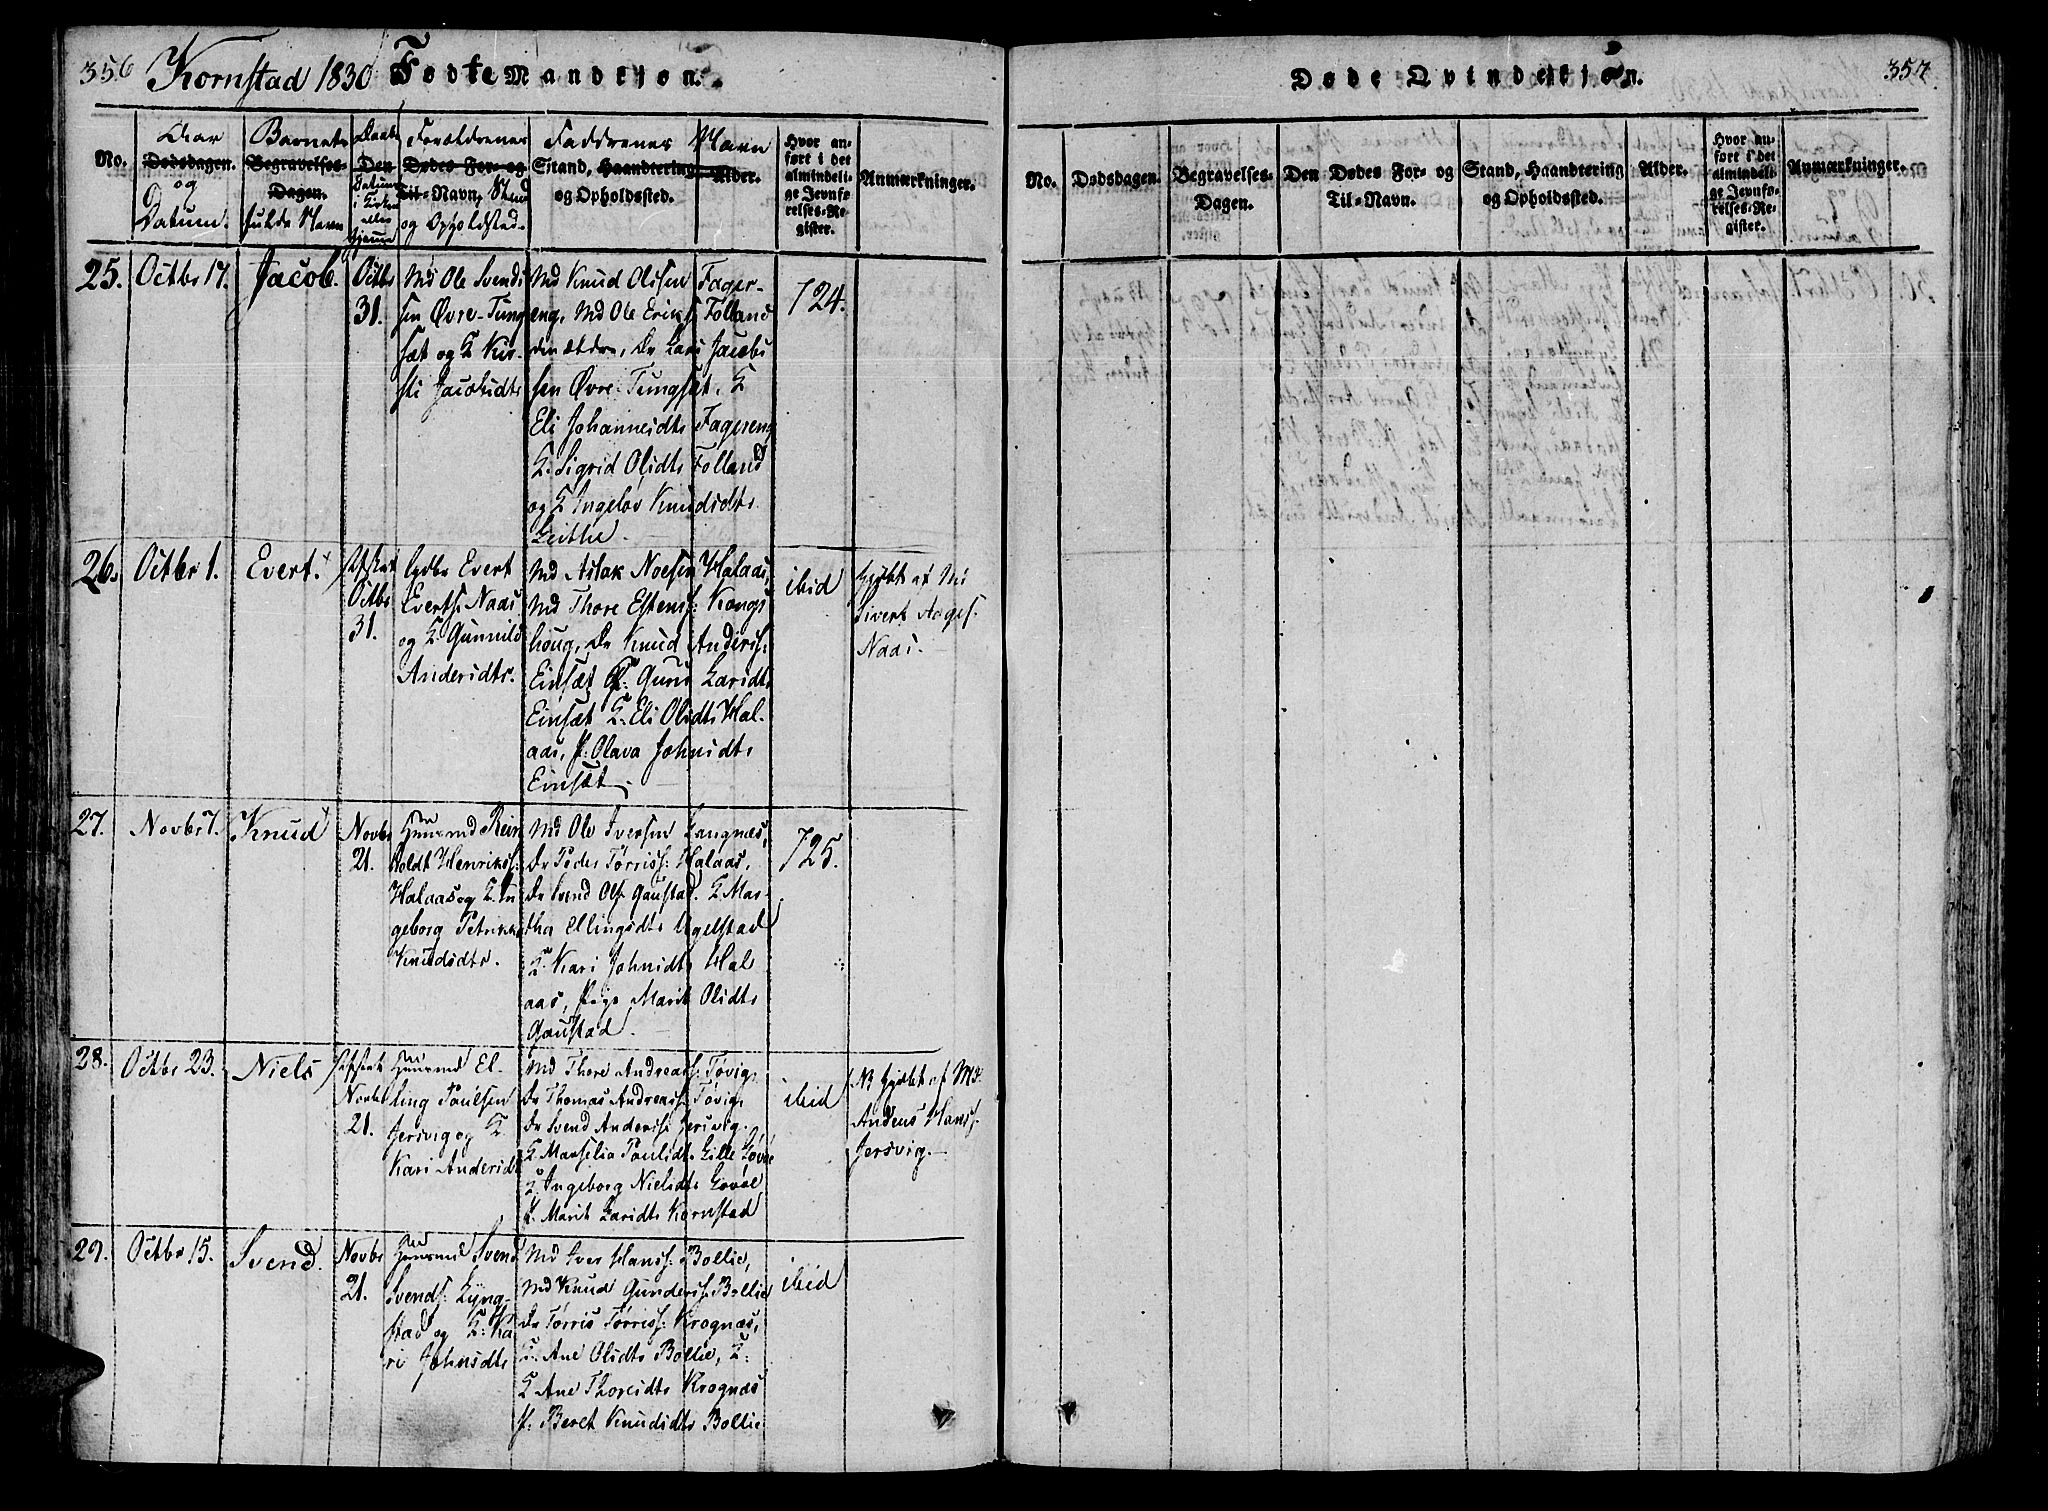 356 Kornstad 1830 Fødte Mandkiøn.
No.
Aar
Dødsdagen.
og
Datum.
Barnets
Begravelses-
Dagen.
fulde Navn
Daabs
Den
Datum
i Kirken
eller
hjemme
Forældrenes
Dødes For- og
Til-Navn, Stand
og Opholdsted.
Faddrenes Navn
Stand, Haandtering
og Opholdssted.
Alder.
Hvor an-
ført i det
almindeli-
ge Jevnfø-
relses-Re-
gister.
Anmærkninger.
25. Octbr 17. Jacob.
Octbr
31.
Md Ole Svend-
sen Øvre-Tung-
sæt og K Kir-
sti Jacobsdtr
Md Knud Olssen Fager-
eng, Md Ole Eriks. Folland
den ældre, Dr Lars Jacobs
sen Øvre Tungsæt. K
Eli Johannesdtr Fagereng
K. Sigrid Olsdtr Folland
og K Ingeløv Knudsdtr
Leithe.
724.
26. Octbr 1. Evert.
Octbr
31.
Evert
Everts. Naas
og K. Gunnild
Andersdtr.
Md Aslak Noesen Halaas,
Md Thore Estens: Kongs
houg, Dr Knud Anders:
Einsæt K: Guru Larsdtr
Einsæt K. Eli Olsdtr Hal-
aas, P: Olava Johnsdtr
Einsæt.
ibid
af Md
Sivert Aages.
Naas.
27. Novbr 7. Knud
Novbr
21.
Huusmd Rein
holdt Henriks:
Halaas og K. In
geborg Petrikke
Knudsdtr.
Md Ole Iversen Langnæs,
Dr Peder Tørris: Halaas,
Dr Svend Ols. Gaustad. K Mar-
tha Ellingsdtr Ugelstad
K. Kari Johnsdtr Hal
aas, Pige Marit Olsdtr
Gaustad.
725.
28. Octbr 23. Niels
Novbr
21.
Huusmd El-
ling Poulsen
Jersvig og K
Kari Andersdtr
Md Thore Andreas: Tøvig,
Dr Thomas Andreas: Tøvig,
Dr Svend Anders: Jersvig.
K Marselia Poulsdtr Lille Løvøe
K. Ingeborg Nielsdtr Løvøe
P. Marit Larsdtr Kornstad
ibid
NB af Md
Anders Hans:
Jersvig.
29. Octbr 15. Svend.
Novbr
21.
Huusmd Svend
Svends: Lyng-
stad og K: Ka
ri Johnsdtr
Md Iver Hans: Bollie,
Md Knud Gunders: Bollie
Dr Tørris Tørris: Krognæs,
K. Ane Olsdtr Bollie, K:
K Ane Thoresdtr Krognæs
P. Beret Knudsdtr Bollie
ibid
Døde Qvindekiøn. 357
No.
Dødsdagen.
Begravelses-
Dagen.
Den Dødes For- og
Til-Navn.
Stand, Haandtering
og Opholdssted.
Alder.
Hvor an-
ført i det
almindeli-
ge Jevnfø-
relses-Re-
gister.
Anmærkninger.